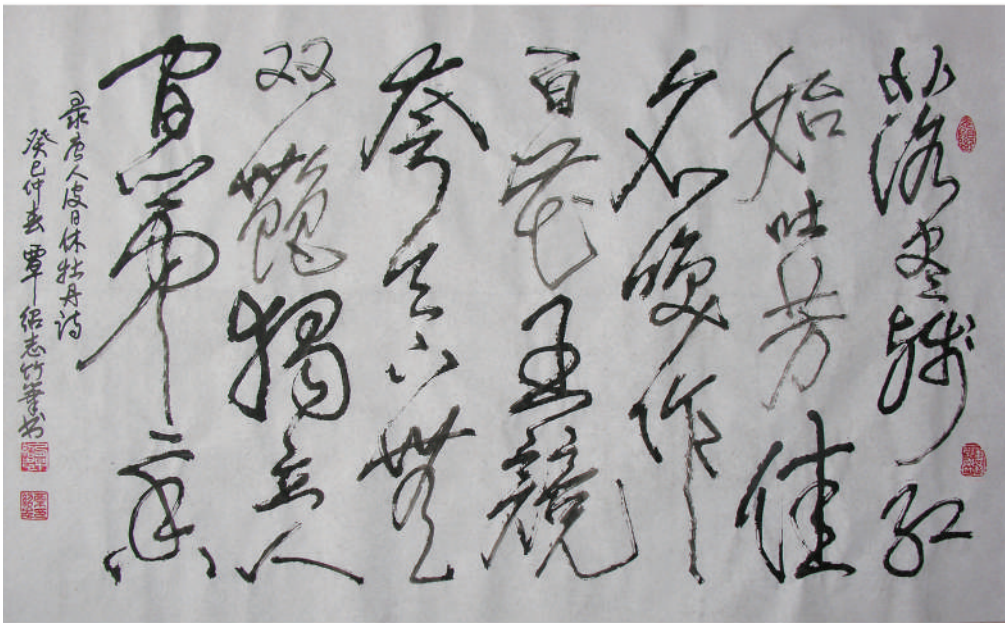 落盡殘红
始吐芳佳
名唤作
百花王競
夸天下無
双艷獨立人
间第一香
录唐人皮日休牡丹诗
癸巳仲春覃绍志竹笔书